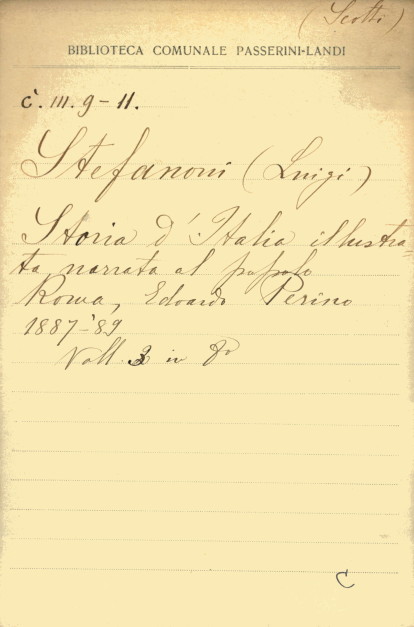 (Scotti)
BIBLIOTECA COMUNALE PASSERINI-LANDI
Ċ. III. 9-11.
Stefanoni (Luigi)
Storia d'Italia illustra-
ta narrata al popolo
Roma, Edoardo Perino
1887-'89
Voll. 3 in 8º
C